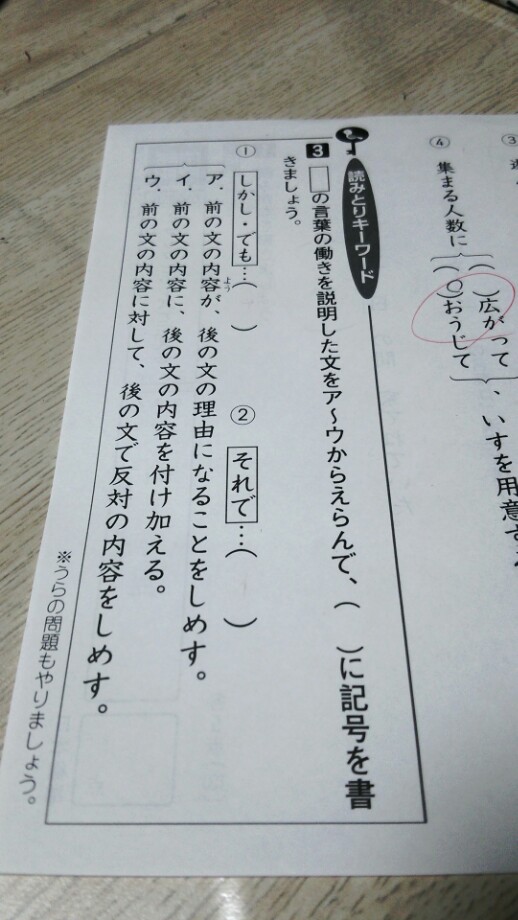 ③
④ 集まる人数に{( )広がって
(○)おうじて}、いすを用意する
読みとりキーワード
3 □の言葉の働きを説明した文をア〜ウからえらんで、( )に記号を書
きましょう。
① しかし・でも…( ) ② それで…( )
ア．前の文の内容が、後の文の理由になることをしめす。
よう
イ．前の文の内容に、後の文の内容を付け加える。
ウ．前の文の内容に対して、後の文で反対の内容をしめす。
※うらの問題もやりましょう。